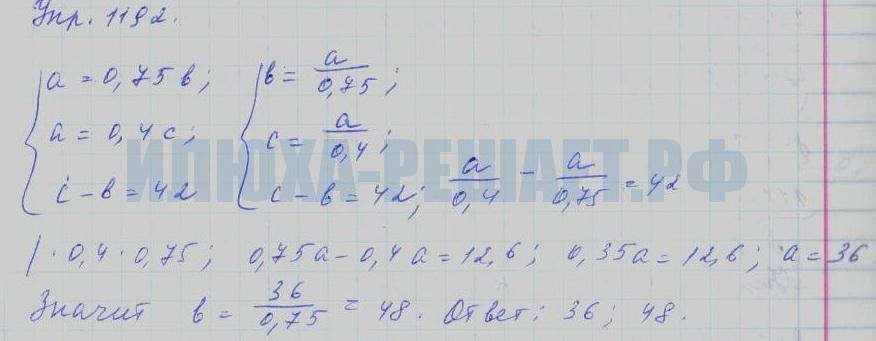 Упр. 1192.
a = 0,75 в; в = a/0,75;
a = 0,4 c; c = a/0,4;
c - в = 42 c - в = 42; a/0,4 - a/0,75 = 42
| · 0,4 · 0,75; 0,75a - 0,4a = 12,6; 0,35a = 12,6; a = 36
Значит в = 36/0,75 = 48. Ответ: 36; 48.
ИЛЮХА-РЕШАЕТ.РФ